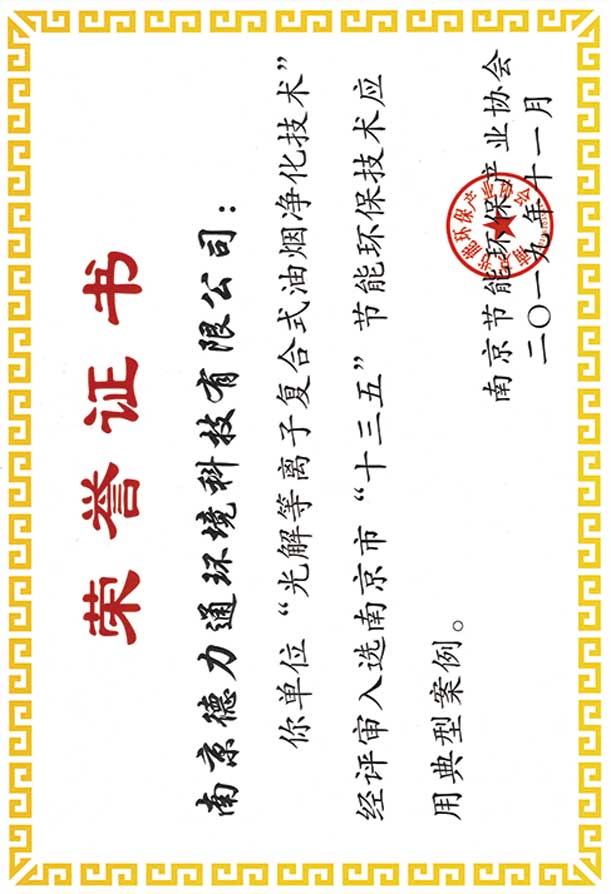 荣誉证书
南京德力通环境科技有限公司：
你单位“光解等离子复合式油烟净化技术”
经评审入选南京市“十三五”节能环保技术应
用典型案例。
南京节能环保产业协会
二〇一九年十一月